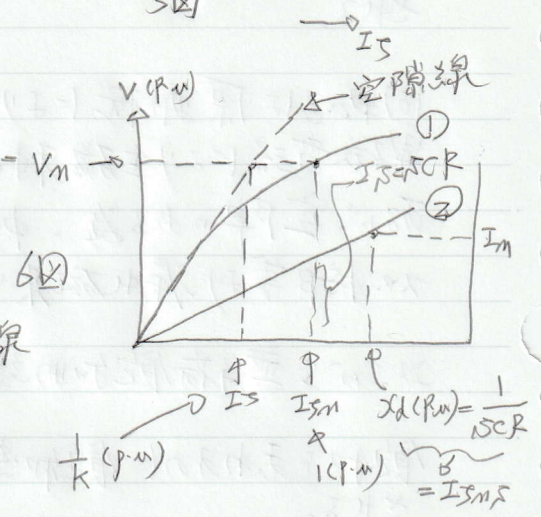 5図
I5
V (P.U)
空隙線
①
= Vn
I5=SCR
②
In
6図
線
I5
I5n
Xd(P.U)=1/SCR
1/K (P.U)
1(P.U)
= I5ns